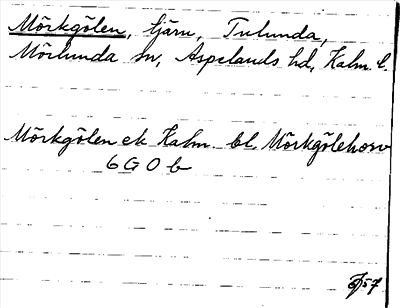 Mörkgölen, tjärn, Tulunda,
Mörlunda sn, Aspelands hd, Kalm. l.
Mörkgölen ek Kalm. bl. Mörkgölehorv
6 G O b
57